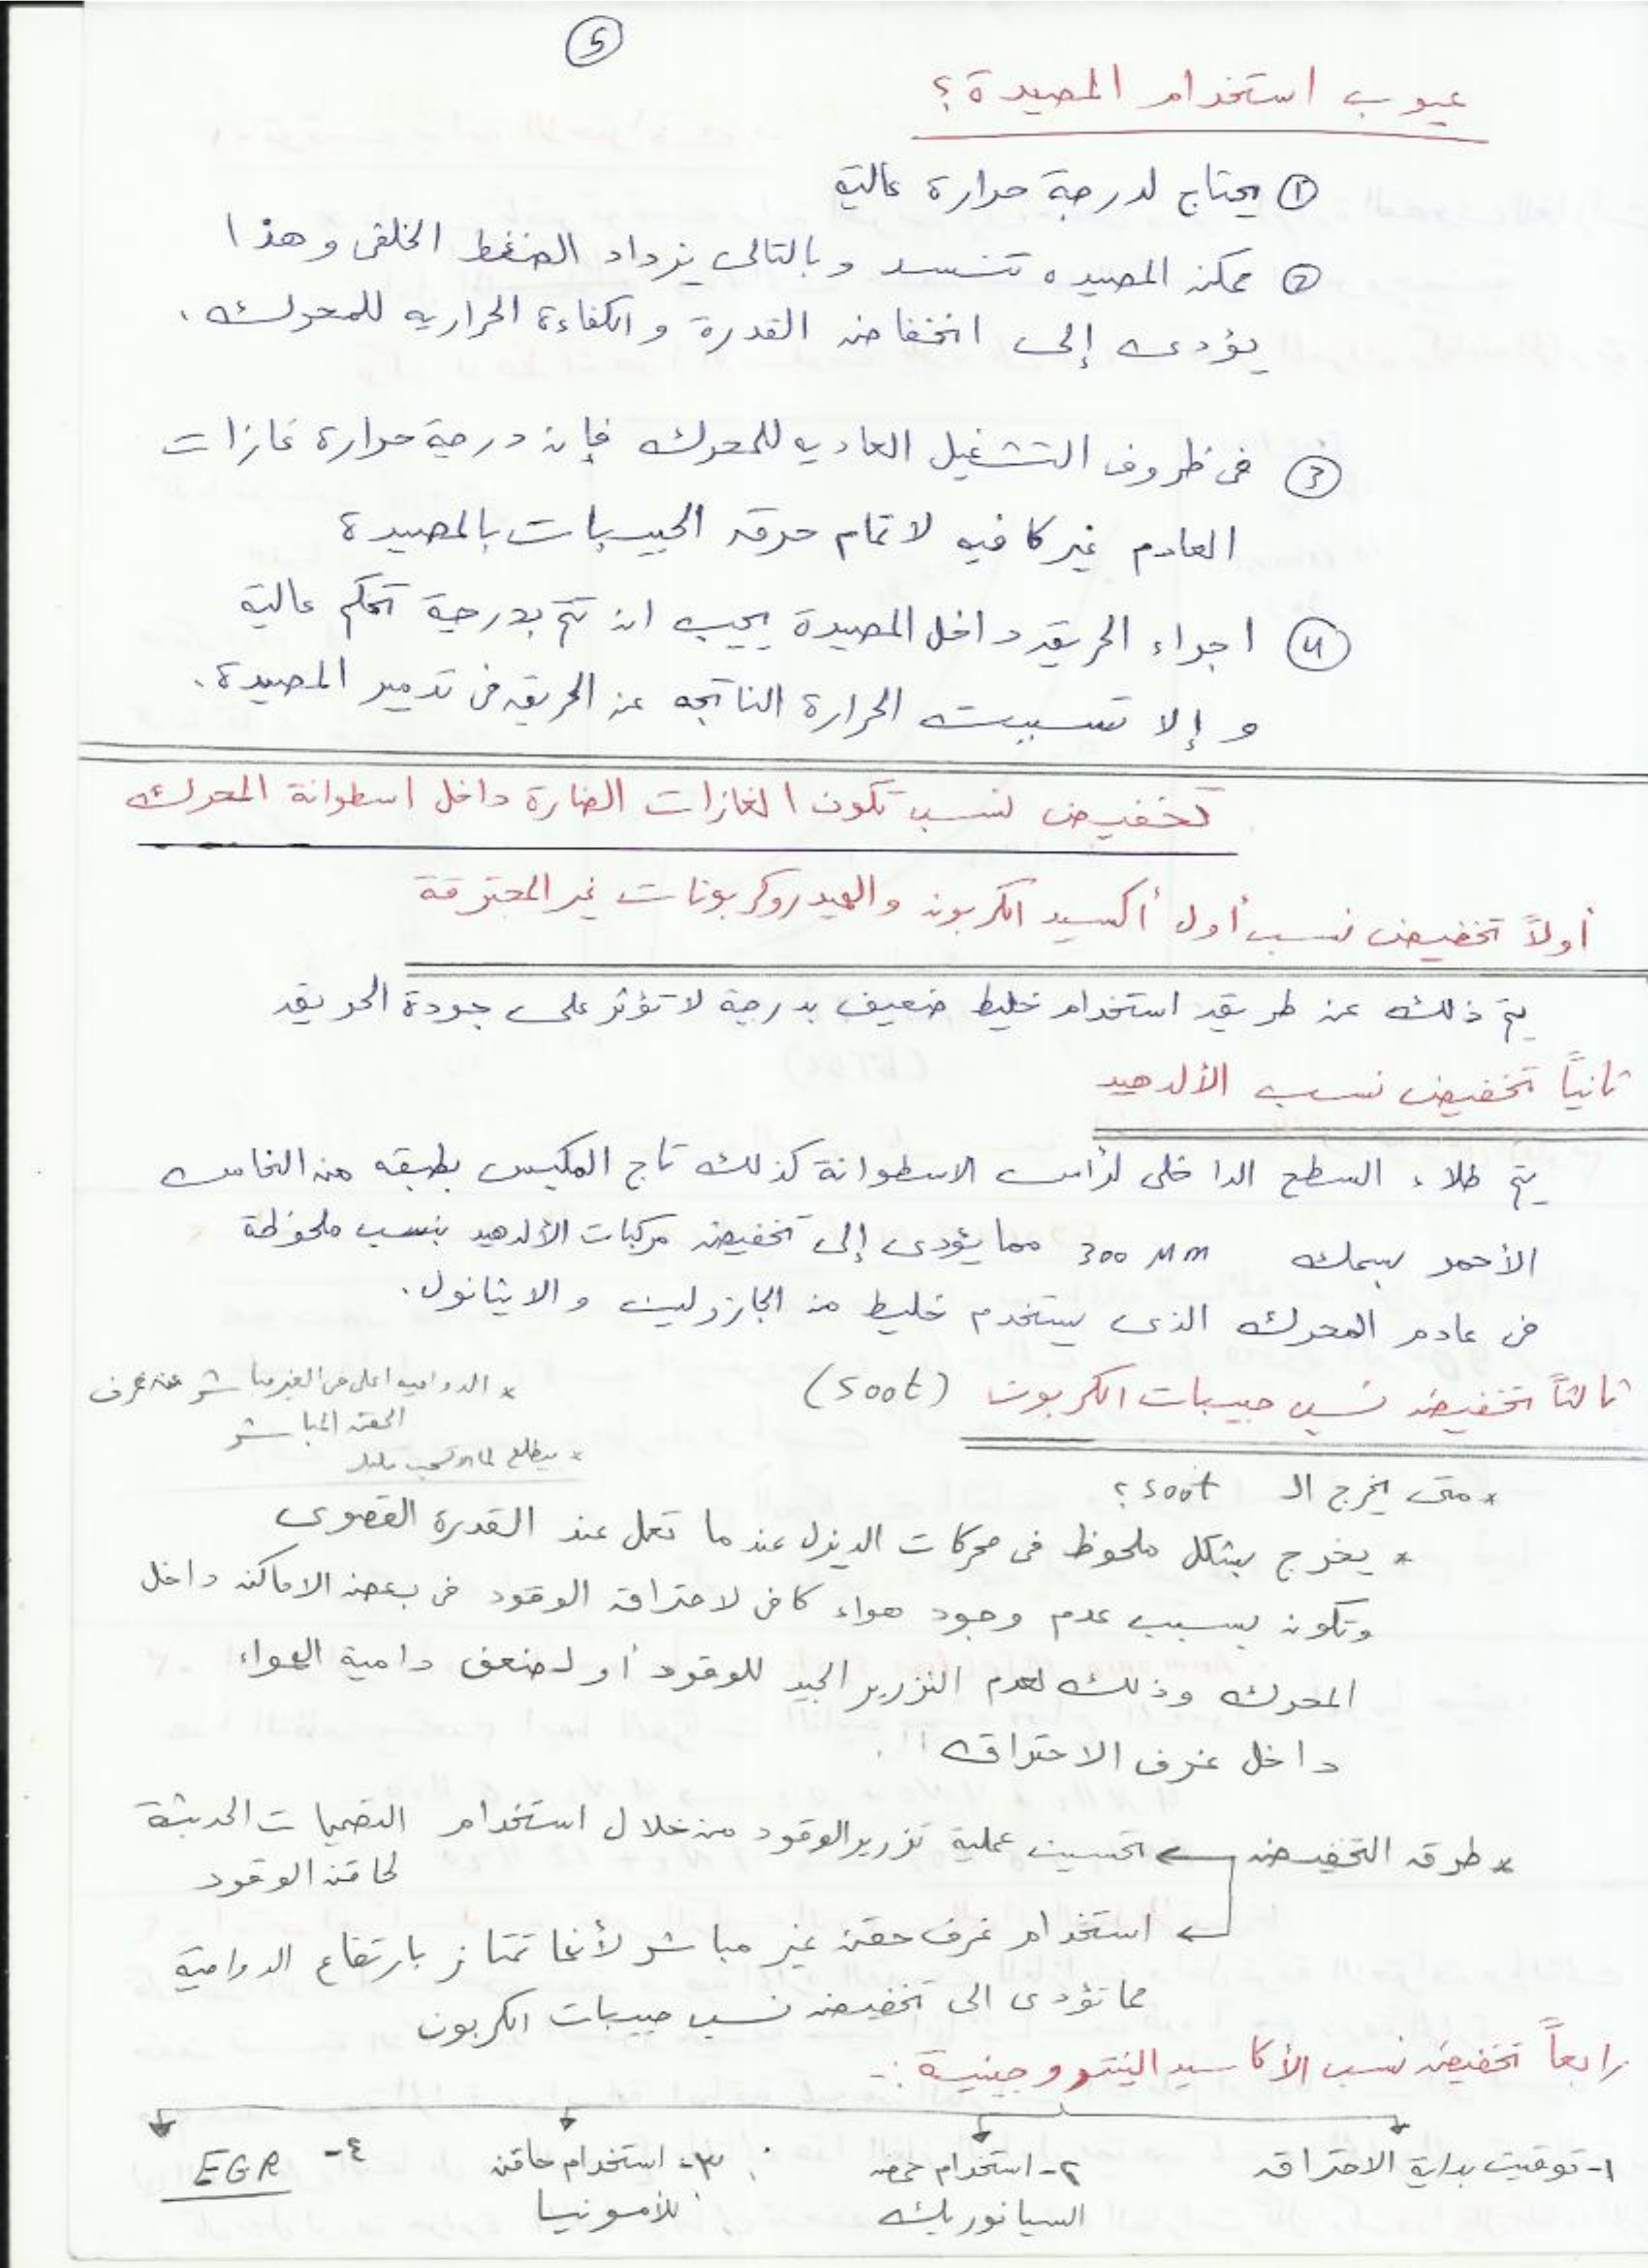 5
عيوب استخدام المصيدة؟
① يحتاج لدرجة حرارة عالية
② ممكن المصيده تنسد وبالتالى يزداد الضغط الخلفى وهذا
يؤدى إلى انخفاض القدرة والكفاءة الحراريه للمحرك.
③ فى ظروف التشغيل العاديه للمحرك فإن درجة حرارة غازات
العادم غير كافيه لاتمام حرق الحبيبات بالمصيدة
④ اجراء الحريق داخل المصيدة يجب ان تتم بدرجة تحكم عالية
وإلا تسببت الحرارة الناتجه عن الحريق فى تدمير المصيدة.
تخفيض نسب تكون الغازات الضارة داخل اسطوانة المحرك
أولاً تخفيض نسب أول أكسيد الكربون والهيدروكربونات غير المحترقة
يتم ذلك عن طريق استخدام خليط ضعيف بدرجة لا تؤثر على جودة الحريق
ثانياً تخفيض نسب الألدهيد
يتم طلاء السطح الداخلى لرأس الاسطوانة كذلك تاج المكبس بطبقه من النحاس
الأحمر بسمك 300 Mm مما يؤدى إلى تخفيض مركبات الألدهيد بنسب ملحوظة
فى عادم المحرك الذى يستخدم خليط من الجازولين والايثانول.
ثالثاً تخفيض نسب حبيبات الكربون (soot)
* الدواميه اعلى فى الغير مباشر عن غرف
الحقن المباشر
* متى يخرج الـ soot؟
* يخرج بشكل ملحوظ فى محركات الديزل عندما تعمل عند القدرة القصوى
وتكون بسبب عدم وجود هواء كافى لاحتراق الوقود فى بعض الاماكن داخل
المحرك وذلك لعدم التزرير الجيد للوقود أو لضعف دامية الهواء
داخل غرف الاحتراق!!.
* طرق التخفيض ← تحسين عملية تزرير الوقود من خلال استخدام التصميمات الحديثة
لحاقن الوقود
← استخدام غرف حقن غير مباشر لأنها تمتاز بارتفاع الدوامية
مما تؤدى الى تخفيض نسب حبيبات الكربون
رابعاً تخفيض نسب الأكاسيد النيتروجينية :-
١- توقيت بداية الاحتراق
٢- استخدام حمض
السيانوريك
٣- استخدام حاقن
للأمونيا
٤- EGR